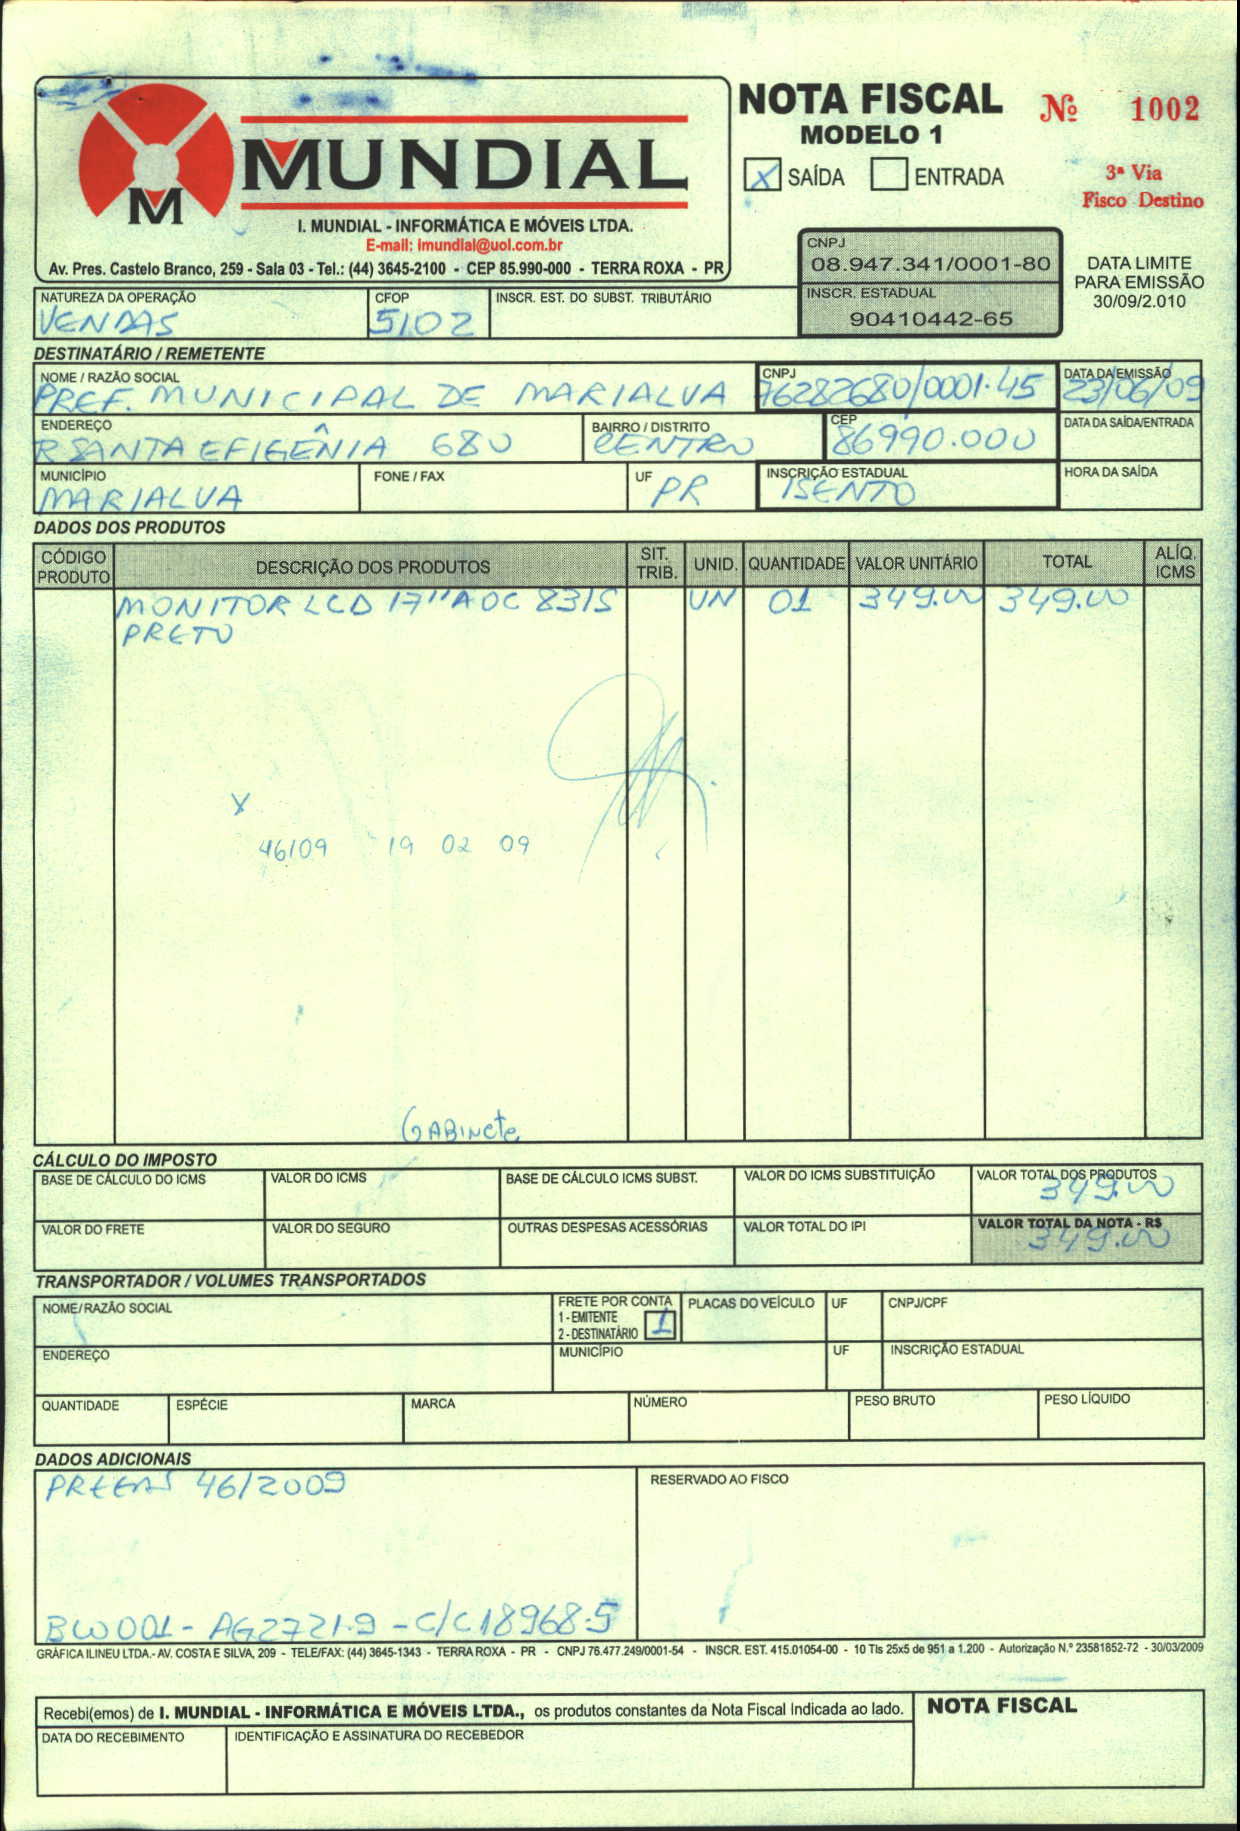 NOTA FISCAL
MODELO 1
Nº 1002
X SAÍDA ENTRADA
3ª Via
Fisco Destino
M
MUNDIAL
I. MUNDIAL - INFORMÁTICA E MÓVEIS LTDA.
E-mail: imundial@uol.com.br
Av. Pres. Castelo Branco, 259 - Sala 03 - Tel.: (44) 3645-2100 - CEP 85.990-000 - TERRA ROXA - PR
CNPJ
08.947.341/0001-80
INSCR. ESTADUAL
90410442-65
DATA LIMITE
PARA EMISSÃO
30/09/2.010
NATUREZA DA OPERAÇÃO CFOP INSCR. EST. DO SUBST. TRIBUTÁRIO
VENDAS 5102
DESTINATÁRIO / REMETENTE
NOME / RAZÃO SOCIAL CNPJ DATA DA EMISSÃO
PREF. MUNICIPAL DE MARIALVA 76282680/0001.45 23/06/09
ENDEREÇO BAIRRO / DISTRITO CEP DATA DA SAÍDA/ENTRADA
R SANTA EFIGÊNIA 680 CENTRO 86990.000
MUNICÍPIO FONE / FAX UF INSCRIÇÃO ESTADUAL HORA DA SAÍDA
MARIALVA PR ISENTO
DADOS DOS PRODUTOS
CÓDIGO PRODUTO DESCRIÇÃO DOS PRODUTOS SIT. TRIB. UNID. QUANTIDADE VALOR UNITÁRIO TOTAL ALÍQ. ICMS
MONITOR LCD 17" AOC 831S UN 01 349.00 349.00
PRETO
46/09 19 02 09
GABINete
CÁLCULO DO IMPOSTO
BASE DE CÁLCULO DO ICMS VALOR DO ICMS BASE DE CÁLCULO ICMS SUBST. VALOR DO ICMS SUBSTITUIÇÃO VALOR TOTAL DOS PRODUTOS
349.00
VALOR DO FRETE VALOR DO SEGURO OUTRAS DESPESAS ACESSÓRIAS VALOR TOTAL DO IPI VALOR TOTAL DA NOTA - R$
349.00
TRANSPORTADOR / VOLUMES TRANSPORTADOS
NOME/RAZÃO SOCIAL FRETE POR CONTA PLACAS DO VEÍCULO UF CNPJ/CPF
1 - EMITENTE
2 - DESTINATÁRIO 1
ENDEREÇO MUNICÍPIO UF INSCRIÇÃO ESTADUAL
QUANTIDADE ESPÉCIE MARCA NÚMERO PESO BRUTO PESO LÍQUIDO
DADOS ADICIONAIS
46/2009
RESERVADO AO FISCO
001 - AG2721.9 - C/C 18968.5
GRÁFICA ILINEU LTDA.- AV. COSTA E SILVA, 209 - TELE/FAX: (44) 3645-1343 - TERRA ROXA - PR - CNPJ 76.477.249/0001-54 - INSCR. EST. 415.01054-00 - 10 Tls 25x5 de 951 a 1.200 - Autorização N.º 23581852-72 - 30/03/2009
Recebi(emos) de I. MUNDIAL - INFORMÁTICA E MÓVEIS LTDA., os produtos constantes da Nota Fiscal Indicada ao lado.
NOTA FISCAL
DATA DO RECEBIMENTO IDENTIFICAÇÃO E ASSINATURA DO RECEBEDOR